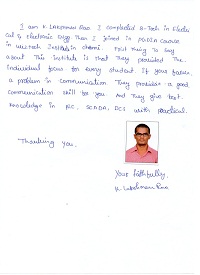 I am K Lakshman Rao I completed B-Tech in Electri
cal & Electronic Engg. Then I joined in PGDIA course
in chennai. First thing to say
about This institute is that They provided The
individual focus for every student. If you facus
a problem in communication They provides a good
communication skill for you And They give best
knowledge in PLC, SCADA, DCS with practical.
Thanking you.
Your faithfully,
K. Lakshman Rao